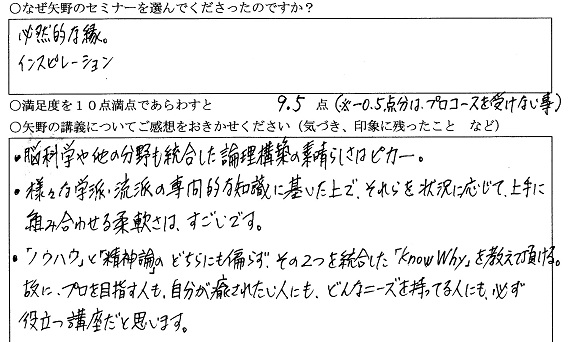 ○なぜ矢野のセミナーを選んでくださったのですか？
必然的な縁。
インスピレーション
○満足度を１０点満点であらわすと 9.5 点（※－0.5点分は、プロコースを受けない事）
○矢野の講義についてご感想をおきかせください（気づき、印象に残ったこと など）
・脳科学や他の分野も統合した論理構築の素晴らしさはピカ一。
・様々な学派・流派の専門的な知識に基いた上で、それらを状況に応じて、上手に
組み合わせる柔軟さは、すごいです。
・「ノウハウ」と「精神論」のどちらにも偏らず、その2つを統合した「Know Why」を教えて頂ける。
故に、プロを目指す人も、自分が癒されたい人にも、どんなニーズを持ってる人にも、必ず
役立つ講座だと思います。